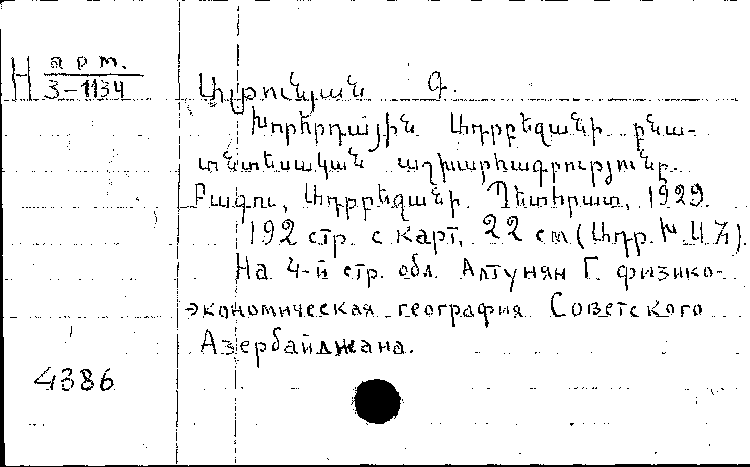 Н арт.
3-1134
Ալթունյան Գ.
Խորհրդային Ադրբեջանի բնա-
տնտեսական աշխարհագրությունը.
Բագու, Ադրբեջանի Պետհրատ, 1929.
192 стр. с карт, 22 см (Ադրբ. Խ. Ս. Հ).
На 4-й стр. обл. Алтунян Г. физико-
экономическая география Советского
Азербайджана.
4386